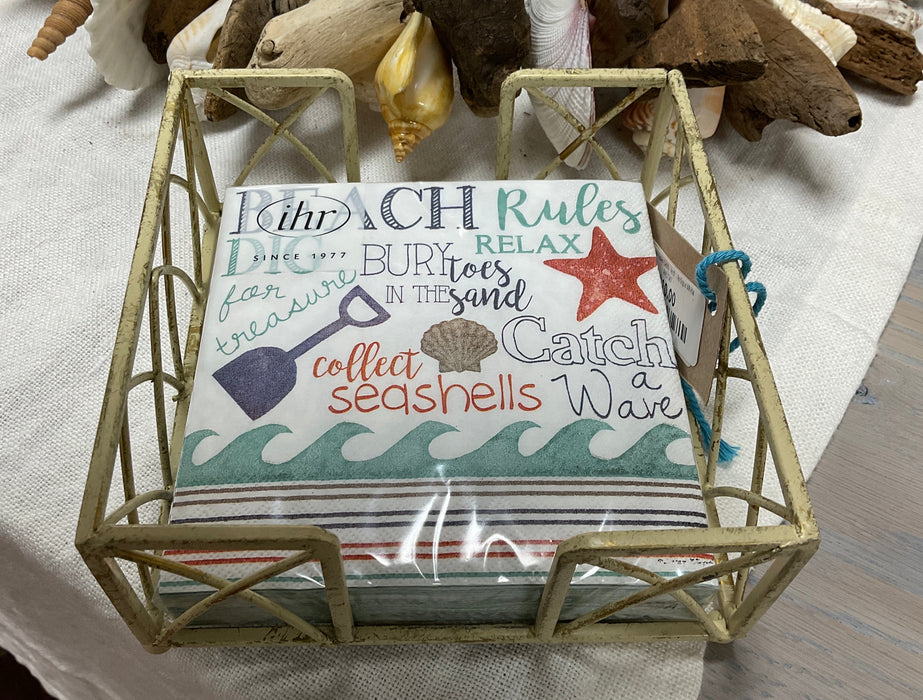 BEACH Rules
ihr
SINCE 1977
DIG
for
treasure
BURY toes
IN THE sand
RELAX
collect
seashells
Catch
a
Wave